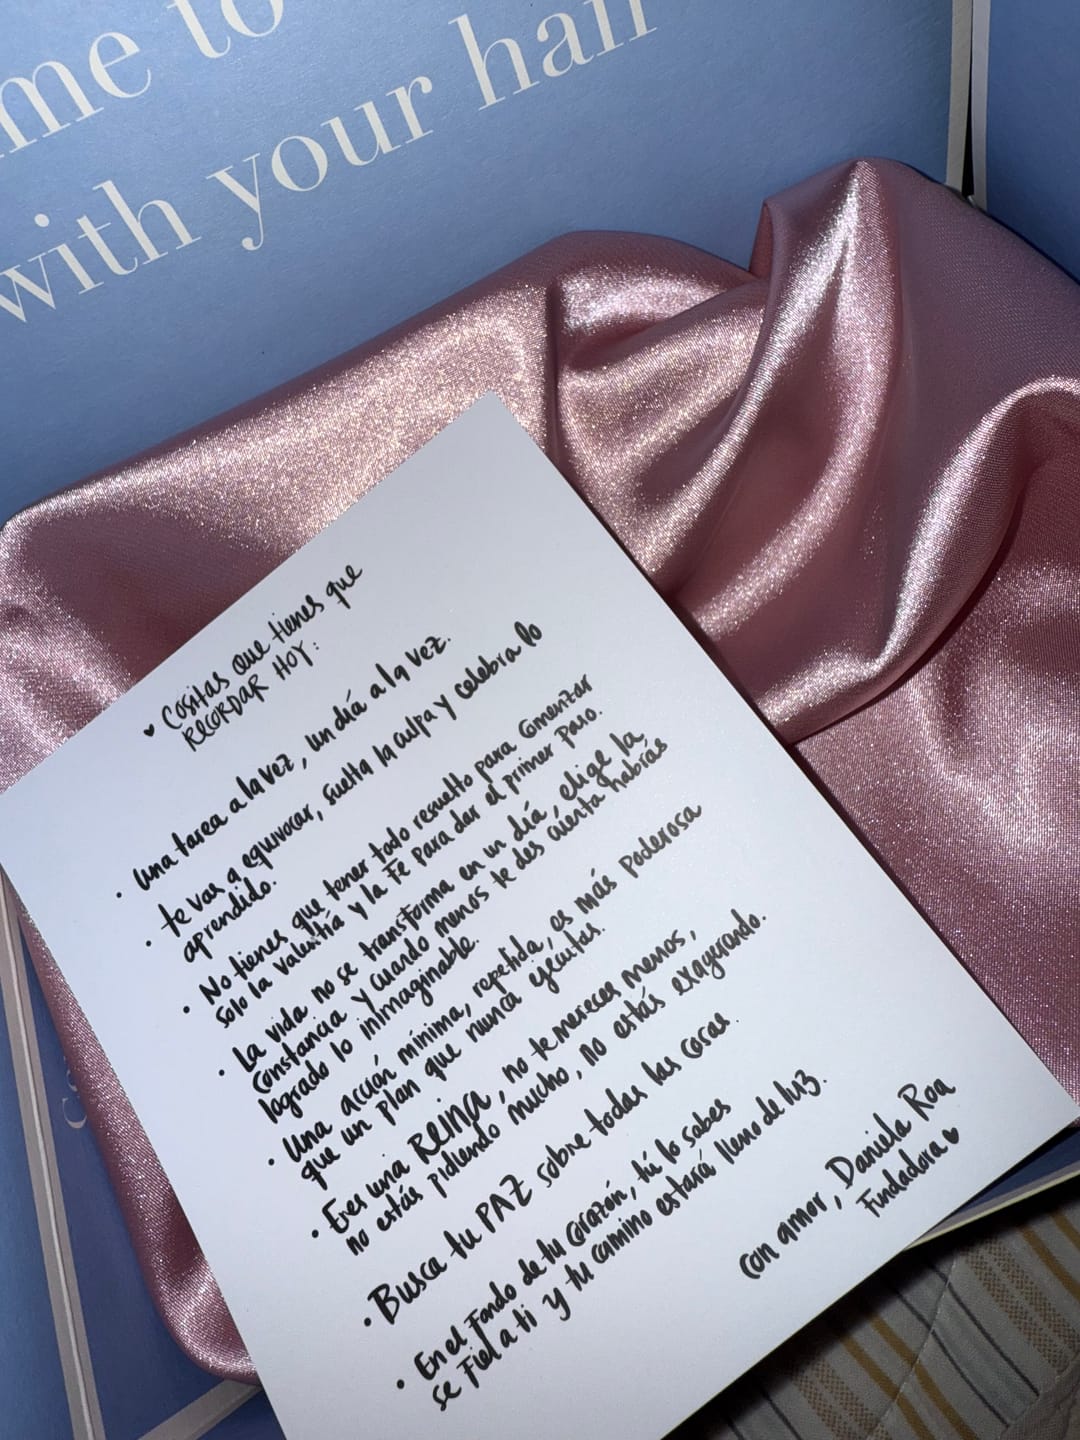 me to
with your hair
♥ Cositas que tienes que
RECORDAR HOY:
• Una tarea a la vez, un día a la vez.
• te vas a equivocar, suelta la culpa y celebra lo
aprendido.
• No tienes que tener todo resuelto para comenzar
solo la valentía y la Fe para dar el primer paso.
• La vida no se transforma en un día, elige la
constancia y cuando menos te des cuenta habrás
logrado lo inimaginable.
• Una acción mínima, repetida, es más poderosa
que un plan que nunca ejecutas.
• Eres una REINA, no te mereces menos,
no estás pidiendo mucho, no estás exagerando.
• Busca tu PAZ sobre todas las cosas.
• En el Fondo de tu corazón, tú lo sabes
se Fiel a ti y tu camino estará lleno de luz.
con amor, Daniela Roa
Fundadora ♥